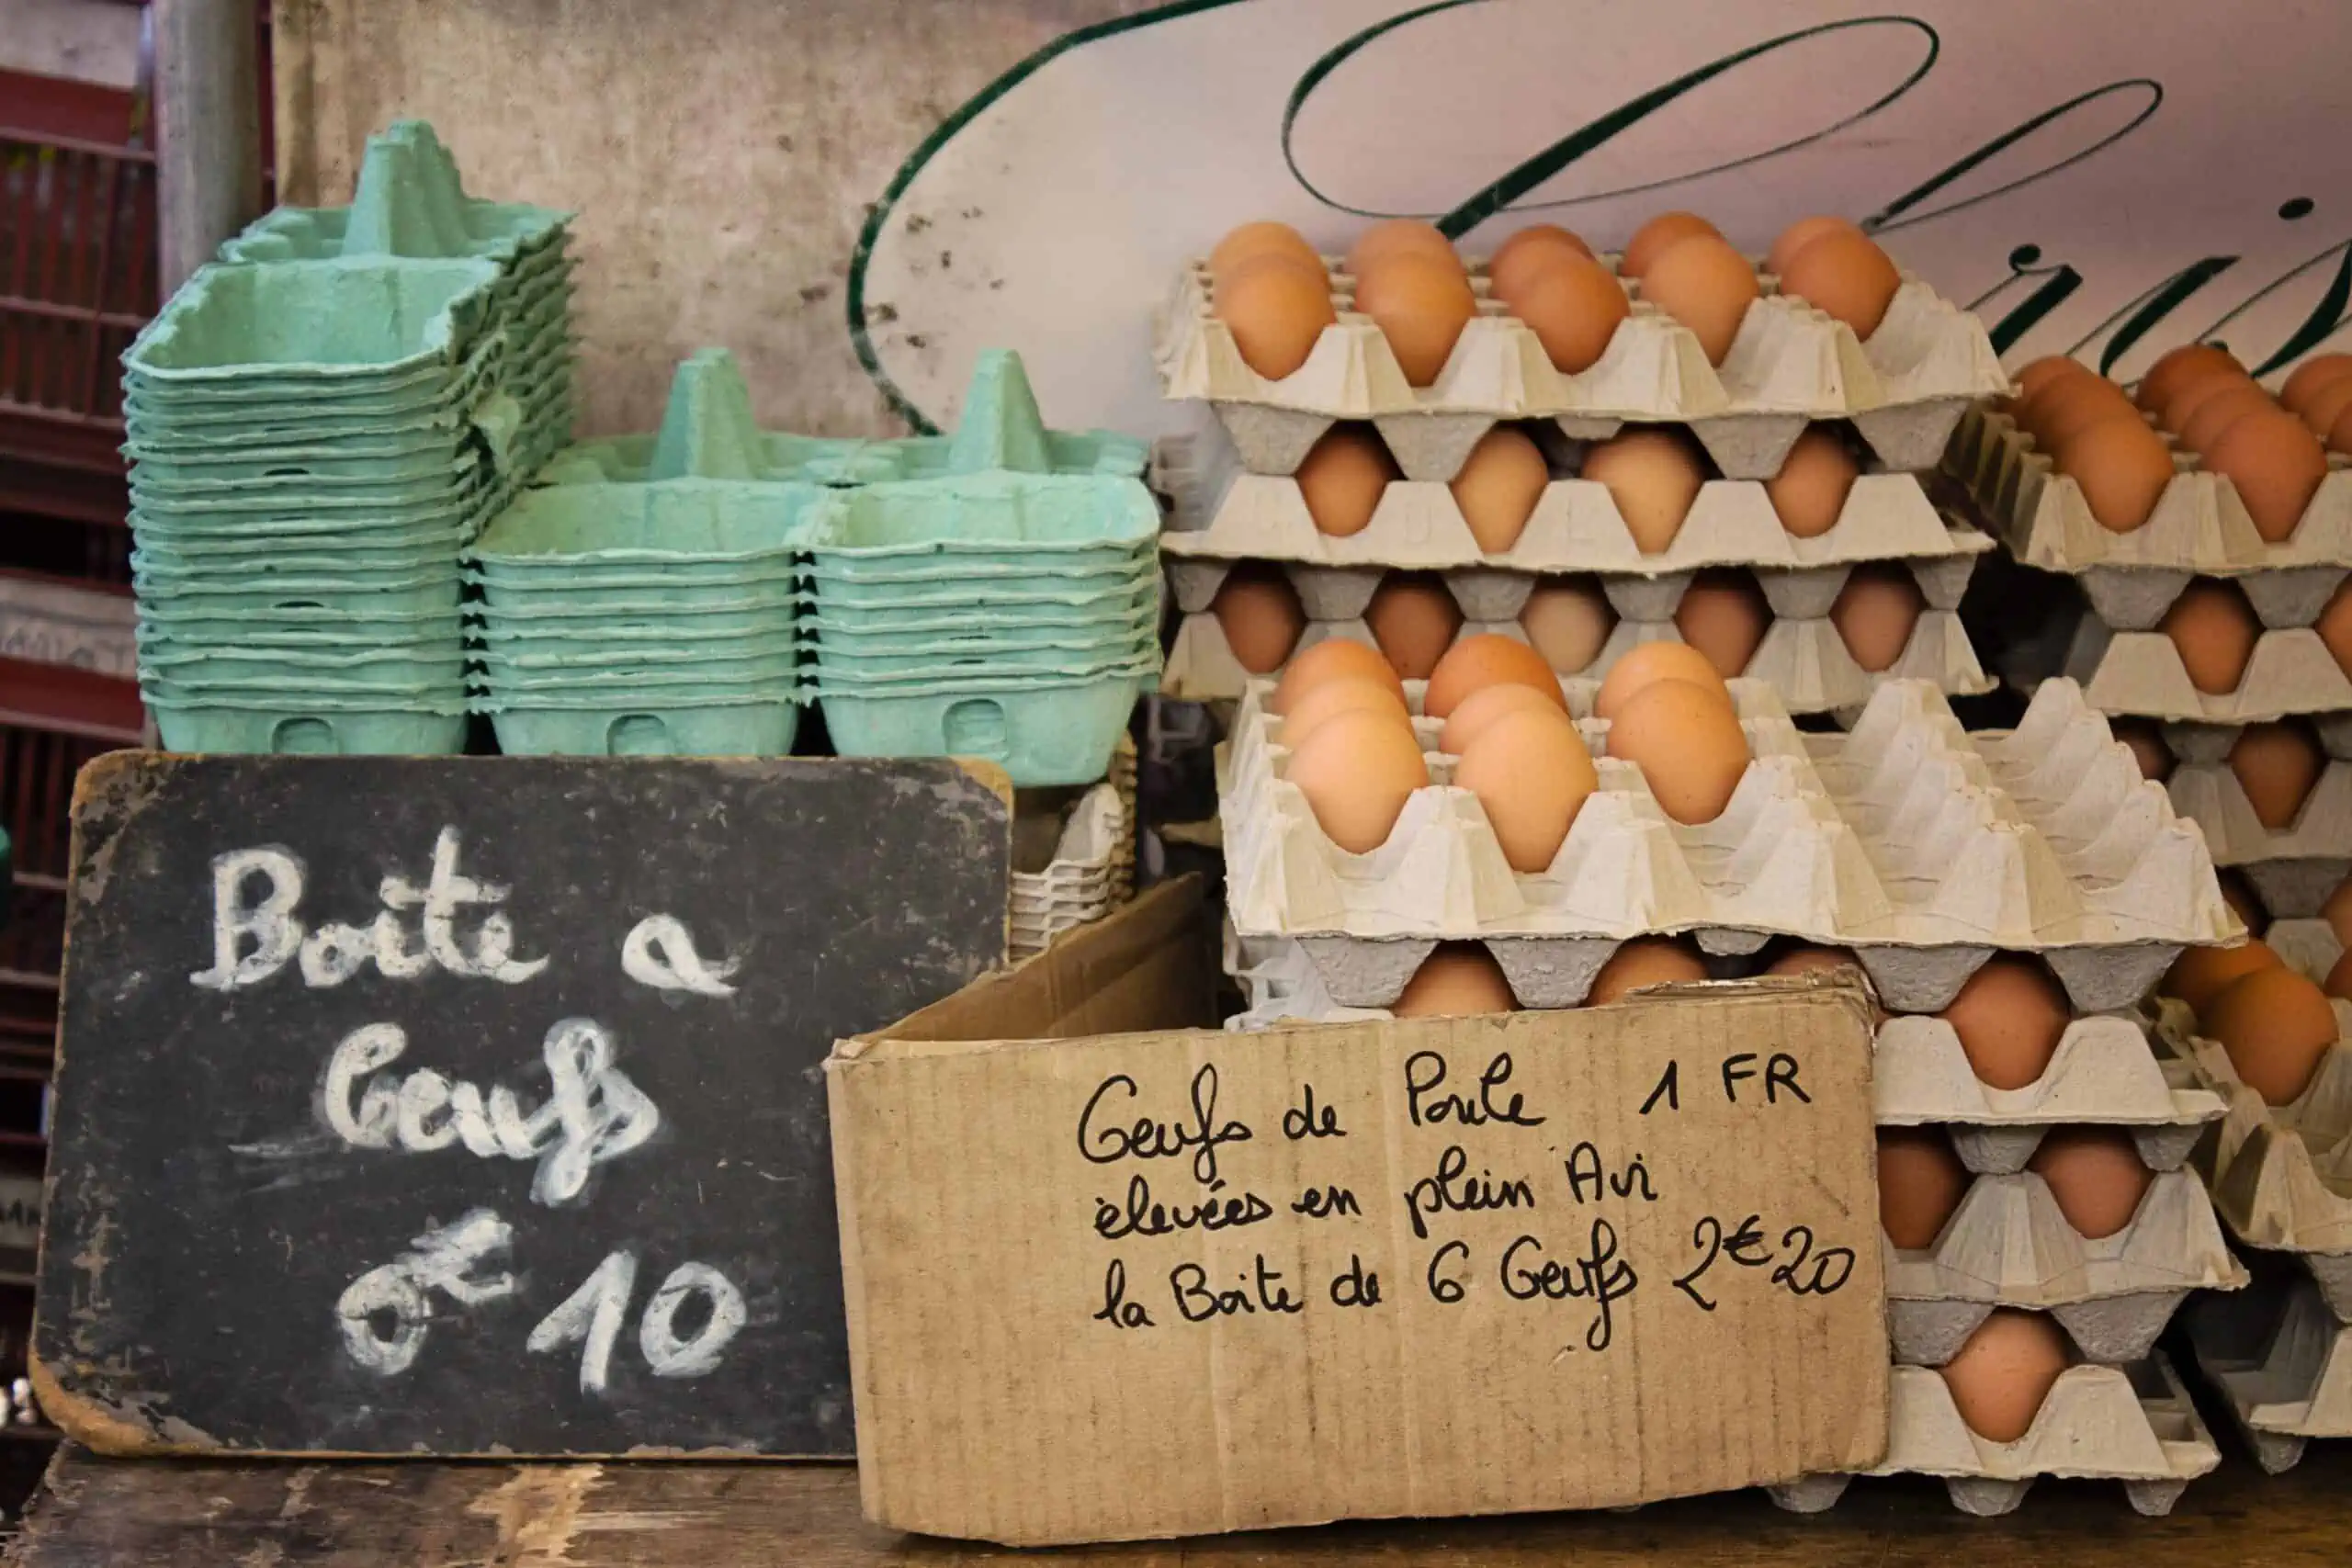 Boite a
Oeufs
0€10
Oeufs de Poule 1 FR
élevées en plein Air
la Boite de 6 Oeufs 2€20